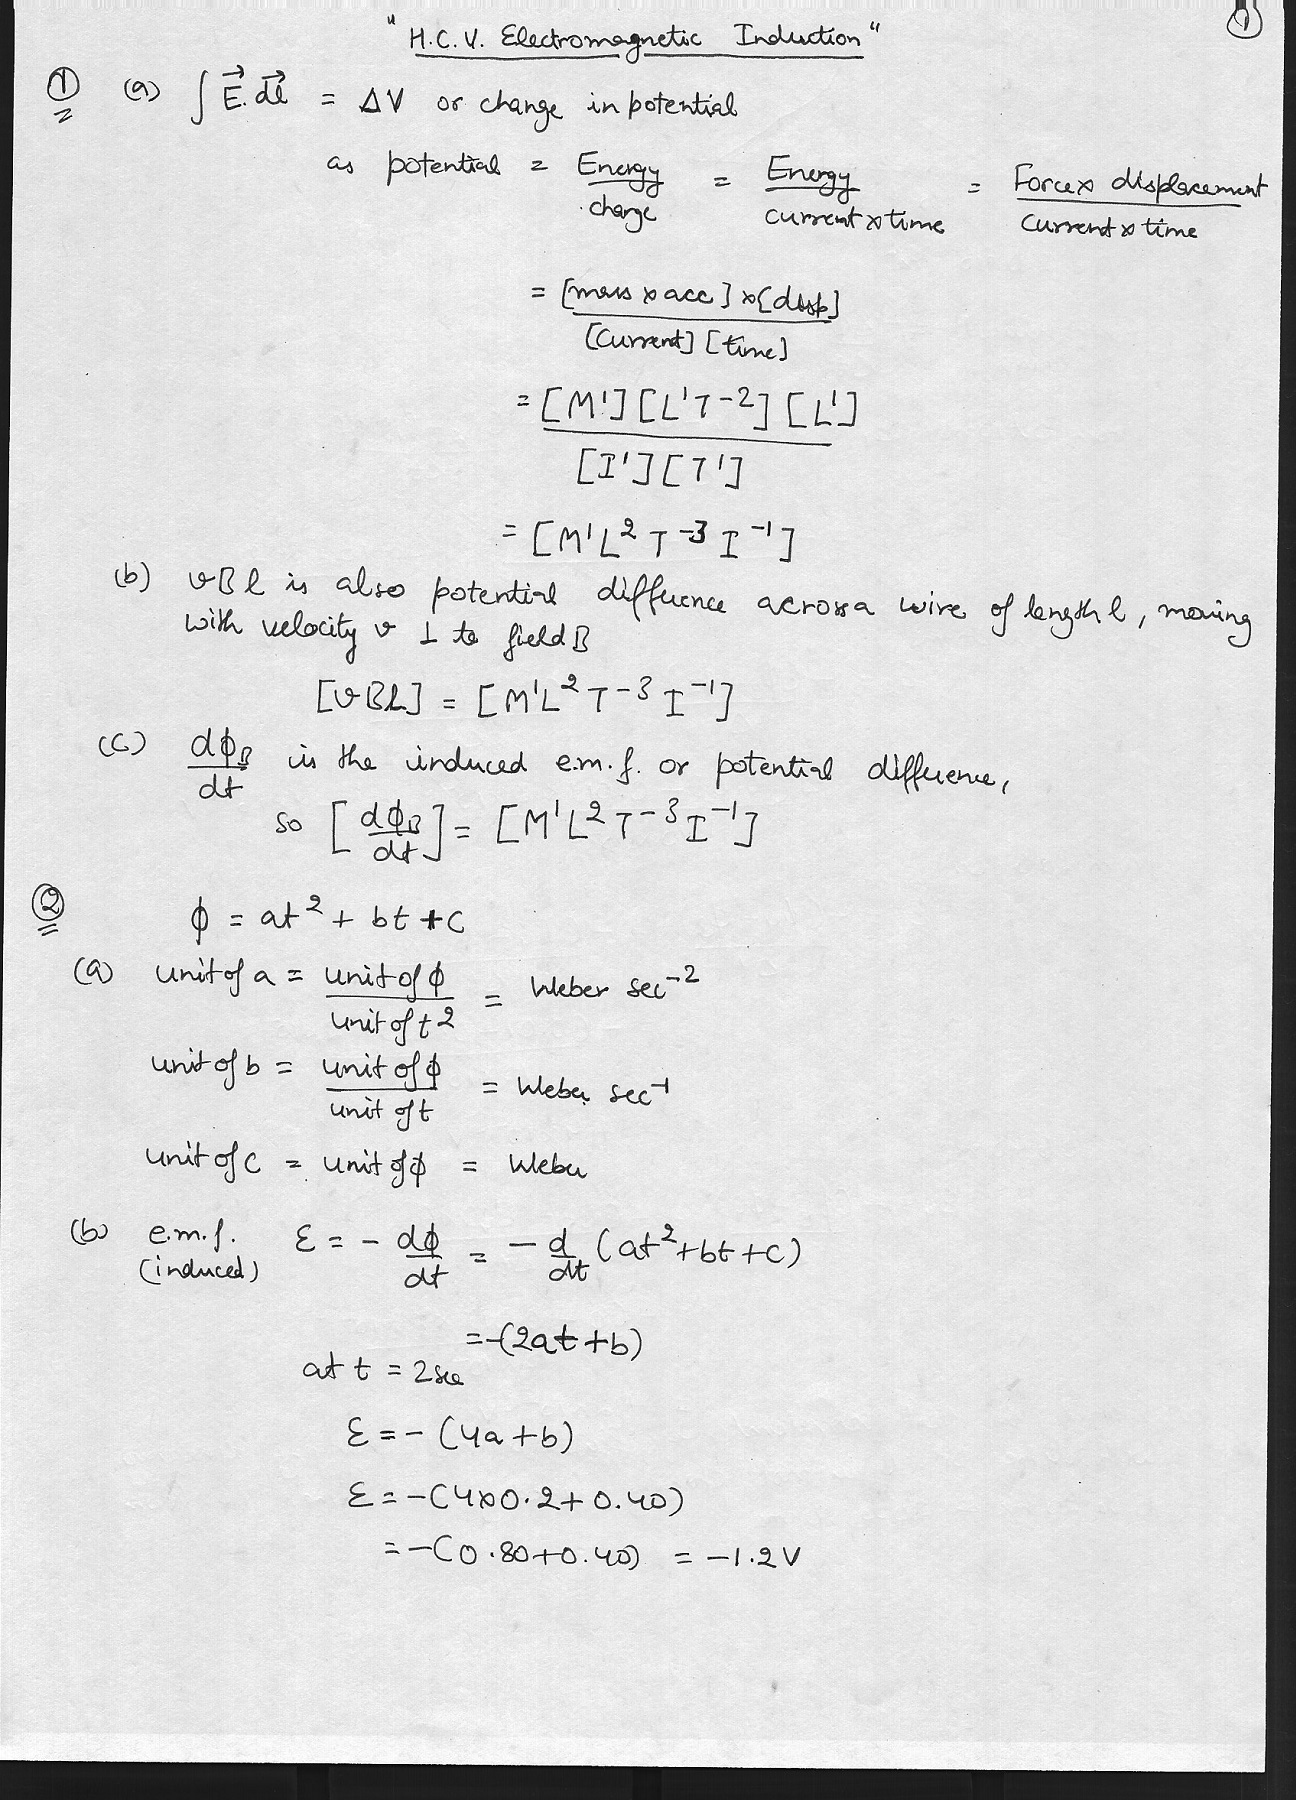 1
"H.C.V. Electromagnetic Induction"
① (a) ∫ E⃗.dl⃗ = ΔV or change in potential
as potential = Energy/charge = Energy/current×time = Force× displacement/current×time
= [mass × acc] ×[disp]/[current] [time]
= [M¹] [L¹T⁻²] [L¹]/[I¹] [T¹]
= [M¹L² T⁻³ I⁻¹]
(b) vBl is also potential difference across a wire of length l, moving
with velocity v ⊥ to field B
[vBl] = [M¹L² T⁻³ I⁻¹]
(c) dϕ_B/dt is the induced e.m.f. or potential difference,
so [dϕ_B/dt] = [M¹L² T⁻³ I⁻¹]
② ϕ = at² + bt + c
(a) unit of a = unit of ϕ/unit of t² = Weber sec⁻²
unit of b = unit of ϕ/unit of t = Weber sec⁻¹
unit of c = unit of ϕ = Weber
(b) e.m.f. ε = - dϕ/dt = - d/dt (at² + bt + c)
(induced)
= -(2at + b)
at t = 2 sec
ε = - (4a + b)
ε = -(4×0.2 + 0.40)
= -(0.80+0.40) = -1.2 V